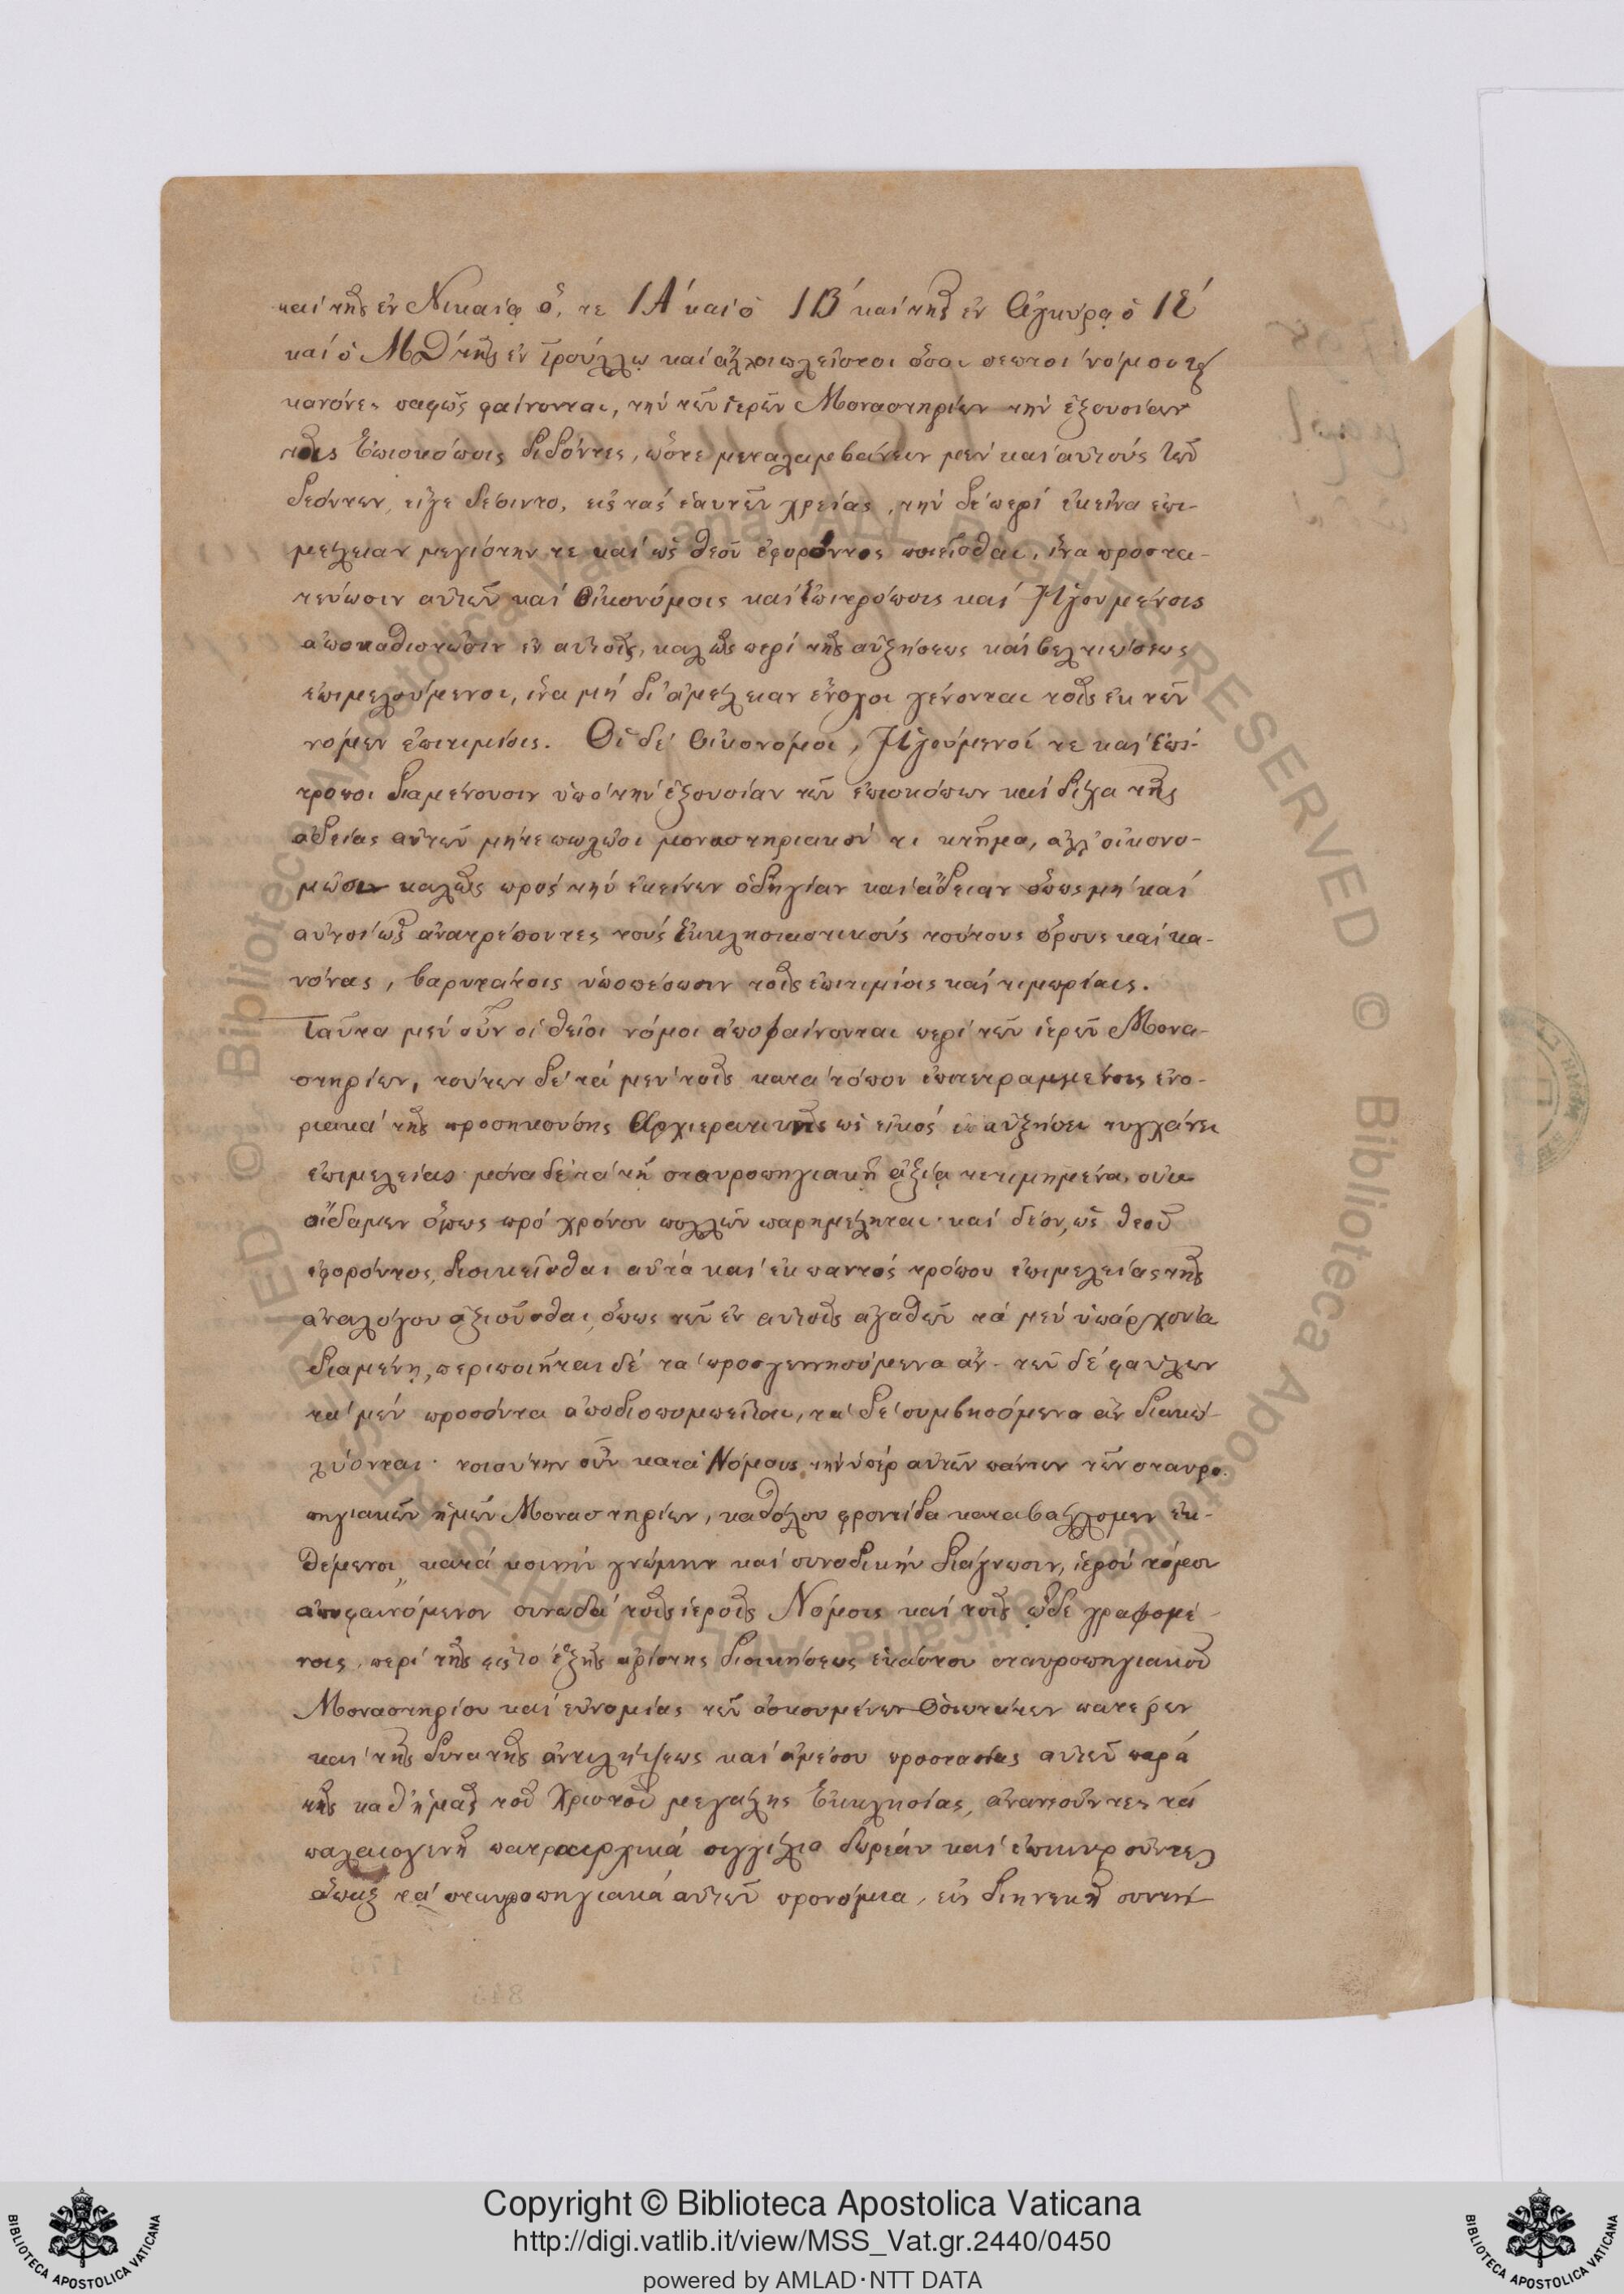 καί τῆς ἐν Νικαίᾳ ὅ, τε ΙΑ΄ καί ὁ ΙΒ΄ καί τῆς ἐν Ἀγκύρᾳ ὁ ΙΕ΄
καί ὁ ΜΘ΄ τῆς ἐν Τρούλλῳ καί ἄλλοι πλεῖστοι ὅσοι σεπτοί νόμοι τε
κανόνες σαφῶς φαίνονται, τήν τῶν ἱερῶν Μοναστηρίων τήν ἐξουσίαν
τοῖς Ἐπισκόποις διδόντες, ὥστε μεταλαμβάνειν μέν καί αὐτούς τῶν
δεόντων, εἴγε δέοιντο, εἰς τάς ἑαυτῶν χρείας, τήν δέ περί ἐκεῖνα ἐπι-
μέλειαν μεγίστην τε καί ὡς θεοῦ ἐφορῶντος ποιεῖσθαι, ἵνα προστα-
τεύωσιν αὐτῶν καί Οἰκονόμοις καί Ἐπιτρόποις καί Ἡγουμένοις
ἀποκαθιστῶσιν ἐν αὐτοῖς, καλῶς περί τῆς αὐξήσεως καί βελτιώσεως
ἐπιμελούμενοι, ἵνα μή δι' ἀμέλειαν ἔνοχοι γένονται τοῖς ἐκ τῶν
νόμων ἐπιτιμίοις. Οἱ δέ Οἰκονόμοι, Ἡγούμενοί τε καί Ἐπί-
τροποι διαμένουσιν ὑπό τήν ἐξουσίαν τῶν ἐπισκόπων καί δίχα τῆς
ἀδείας αὐτῶν μήτε πωλῶσι μοναστηριακόν τι κτῆμα, ἀλλ' οἰκονο-
μῶσιν καλῶς πρός τήν ἐκείνων ὁδηγίαν καί ἄδειαν ὅπως μή καί
αὐτοί ὡς ἀνατρέποντες τούς Ἐκκλησιαστικούς τούτους ὅρους καί κα-
νόνας, βαρυτάτοις ὑποπέσωσιν τοῖς ἐπιτιμίοις καί τιμωρίαις.
Ταῦτα μέν οὖν οἱ θεῖοι νόμοι ἀποφαίνονται περί τῶν ἱερῶν Μονα-
στηρίων, τούτων δέ τά μέν τοῖς κατά τόπον ἐπιτετραμμένοις ἐνο-
ριακά τῆς προσηκούσης Ἀρχιερατικῆς ὡς εἰκός ἐν αὐξήσει τυγχάνει
ἐπιμελείας· μόνα δέ τά τῇ σταυροπηγιακῇ ἀξίᾳ τετιμημένα, οὐκ
οἴδαμεν ὅπως πρό χρόνον πολλῶν παρημέληται· καί δέον, ὡς θεοῦ
ἐφορόντος, διοικεῖσθαι αὐτά καί ἐκ παντός τρόπου ἐπιμελείας τῆς
ἀναλόγου ἀξιοῦσθαι, ὅπως τῶν ἐν αὐτοῖς ἀγαθῶν τά μέν ὑπάρχοντα
διαμένῃ, περιποιῆται δέ τά προσγεννησόμενα ἄν· τῶν δέ φαύλων
τά μέν προσόντα ἀποδιοπομπεῖται, τά δέ συμβησόμενα ἄν διακω-
λύονται· τοιαύτην οὖν κατά Νόμους τήν ὑπέρ αὐτῶν πάντων τῶν σταυρο-
πηγιακῶν ἡμῶν Μοναστηρίων, καθόλου φροντίδα καταβάλλομεν ἐκ-
θέμενοι, κατά κοινήν γνώμην καί συνοδικήν διάγνωσιν, ἱερόν τόμον
ἀποφαινόμενον συνῳδά τοῖς ἱεροῖς Νόμοις καί τοῖς ᾧδε γραφομέ-
νοις, περί τῆς εἰς τό ἑξῆς ἀρίστης διοικήσεως ἑκάστου σταυροπηγιακοῦ
Μοναστηρίου καί εὐνομίας τῶν ἀσκουμένων Ὁσιωτάτων πατέρων
καί τῆς δυνατῆς ἀντιλήψεως καί ἀμέσου προστασίας αὐτῶν παρά
τῆς καθ' ἡμᾶς τοῦ Χριστοῦ μεγάλης Ἐκκλησίας, ἀνανεοῦντες τά
παλαιογενῆ πατριαρχικά σιγγίλια δωρεάν καί ἐπικυροῦντες
ἅπαξ τά σταυροπηγιακά αὐτῶν προνόμια, εἰς διηνεκῆ συντή-
Copyright © Biblioteca Apostolica Vaticana
http://digi.vatlib.it/view/MSS_Vat.gr.2440/0450
powered by AMLAD·NTT DATA